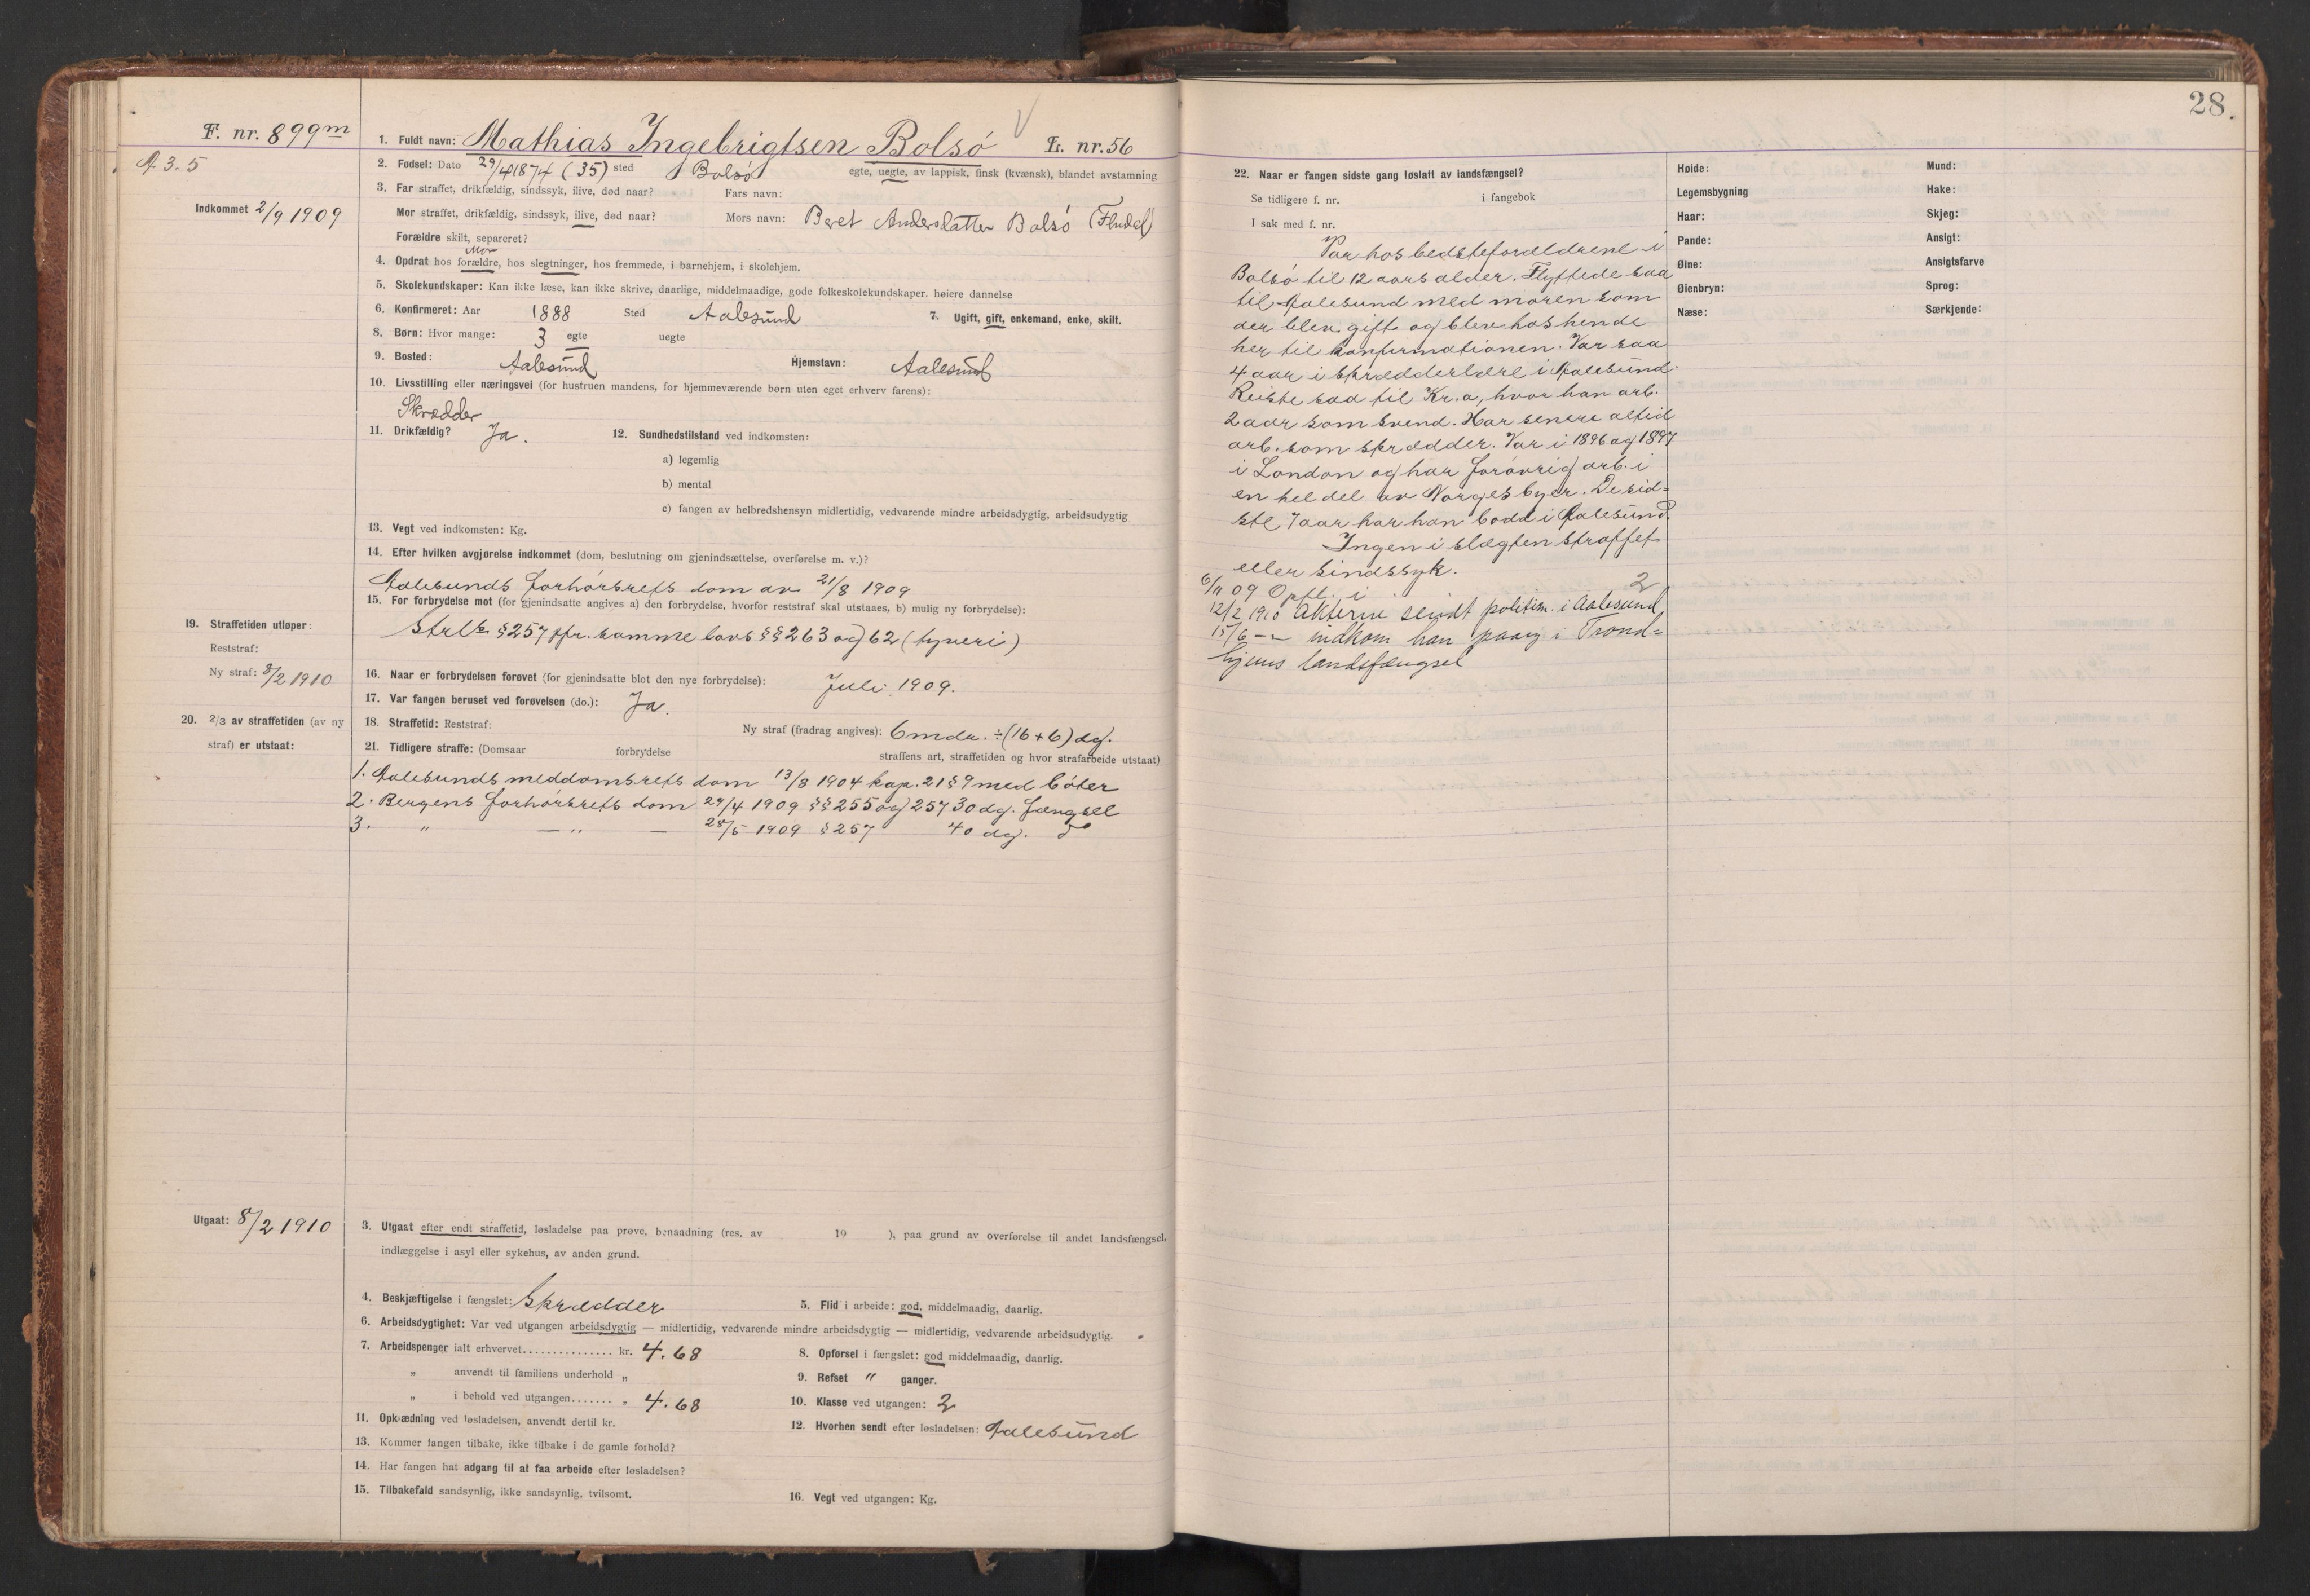 28.
F. nr. 899m
A 3.5
Indkommet 2/9 1909
1. Fuldt navn: Mathias Ingebrigtsen Bolsø L. nr. 56
2. Fødsel: Dato 29/4 1874 (35) sted Bolsø egte, uegte, av lappisk, finsk (kvænsk), blandet avstamning
3. Far straffet, drikfældig, sindssyk, ilive, død naar? Fars navn:
Mor straffet, drikfældig, sindssyk, ilive, død naar? Mors navn: Beret Andersdatter Bolsø
Forældre skilt, separeret?
Mor
4. Opdrat hos forældre, hos slegtninger, hos fremmede, i barnehjem, i skolehjem.
5. Skolekundskaper: Kan ikke læse, kan ikke skrive, daarlige, middelmaadige, gode folkeskolekundskaper. høiere dannelse
6. Konfirmeret: Aar 1888 Sted Aalesund 7. Ugift, gift, enkemand, enke, skilt.
8. Børn: Hvor mange: 3 egte uegte
9. Bosted: Aalesund Hjemstavn: Aalesund
10. Livsstilling eller næringsvei (for hustruen mandens, for hjemmeværende børn uten eget erhverv farens):
Skrædder
11. Drikfældig? Ja. 12. Sundhedstilstand ved indkomsten:
a) legemlig
b) mental
c) fangen av helbredshensyn midlertidig, vedvarende mindre arbeidsdygtig, arbeidsudygtig
13. Vegt ved indkomsten: Kg.
14. Efter hvilken avgjørelse indkommet (dom, beslutning om gjenindsættelse, overførelse m. v.)?
Aalesunds forhørsrets dom av 21/8 1909
15. For forbrydelse mot (for gjenindsatte angives a) den forbrydelse, hvorfor reststraf skal utstaaes, b) mulig ny forbrydelse):
Strl. § 257 jfr. samme lovs §§ 263 og 62 (tyveri)
19. Straffetiden utløper:
Reststraf:
Ny straf: 8/2 1910
16. Naar er forbrydelsen forøvet (for gjenindsatte blot den nye forbrydelse): Juli 1909.
17. Var fangen beruset ved forøvelsen (do.): Ja.
20. 2/3 av straffetiden (av ny
straf) er utstaat:
18. Straffetid: Reststraf: Ny straf (fradrag angives): 6 mdr. ÷ (16 + 6) dg.
21. Tidligere straffe: (Domsaar forbrydelse straffens art, straffetiden og hvor strafarbeide utstaat)
1. Aalesunds meddomsrets dom 13/8 1904 kap. 21 § 9 med bøter
2. Bergens forhørsrets dom 29/4 1909 §§ 255 og 257 30 dg. fængsel
3. " — " — 28/5 1909 § 257 40 dg. do
Utgaat: 8/2 1910
3. Utgaat efter endt straffetid, løsladelse paa prøve, benaadning (res. av 19 ), paa grund av overførelse til andet landsfængsel.
indlæggelse i asyl eller sykehus, av anden grund.
4. Beskjæftigelse i fængslet: Skrædder 5. Flid i arbeide: god, middelmaadig, daarlig.
6. Arbeidsdygtighet: Var ved utgangen arbeidsdygtig — midlertidig, vedvarende mindre arbeidsdygtig — midlertidig, vedvarende arbeidsudygtig.
7. Arbeidspenger ialt erhvervet............... kr. 4.68 8. Opførsel i fængslet: god middelmaadig, daarlig.
" anvendt til familiens underhold " 9. Refset " ganger.
" i behold ved utgangen....... " 4.68 10. Klasse ved utgangen: 2
11. Opklædning ved løsladelsen, anvendt dertil kr. 12. Hvorhen sendt efter løsladelsen: Aalesund
13. Kommer fangen tilbake, ikke tilbake i de gamle forhold?
14. Har fangen hat adgang til at faa arbeide efter løsladelsen?
15. Tilbakefald sandsynlig, ikke sandsynlig, tvilsomt. 16. Vegt ved utgangen: Kg.
22. Naar er fangen sidste gang løslatt av landsfængsel?
Se tidligere f. nr. i fangebok
I sak med f. nr.
Var hos bedsteforældrene i
Bolsø til 12 aars alder. Flyttede saa
til Aalesund med moren som
der blev gift og blev hos hende
her til konfirmationen. Var saa
4 aar i skrædderlære i Aalesund.
Reiste saa til Kr.a, hvor han arb.
2 aar som svend. Har senere altid
arb. som skrædder. Var i 1896 og 1897
i London og har forøvrig arb. i
en hel del av Norges byer. De sid-
ste 7 aar har han bodd i Aalesund.
Ingen i slægten straffet
eller sindssyk.
6/11 09 Opfl. i 2
12/2 1910 Akterne sendt politim. i Aalesund
15/6 — indkom han paany i Trond-
hjems landsfængsel
Høide: Mund:
Legemsbygning Hake:
Haar: Skjeg:
Pande: Ansigt:
Øine: Ansigtsfarve
Øienbryn: Sprog:
Næse: Særkjende: